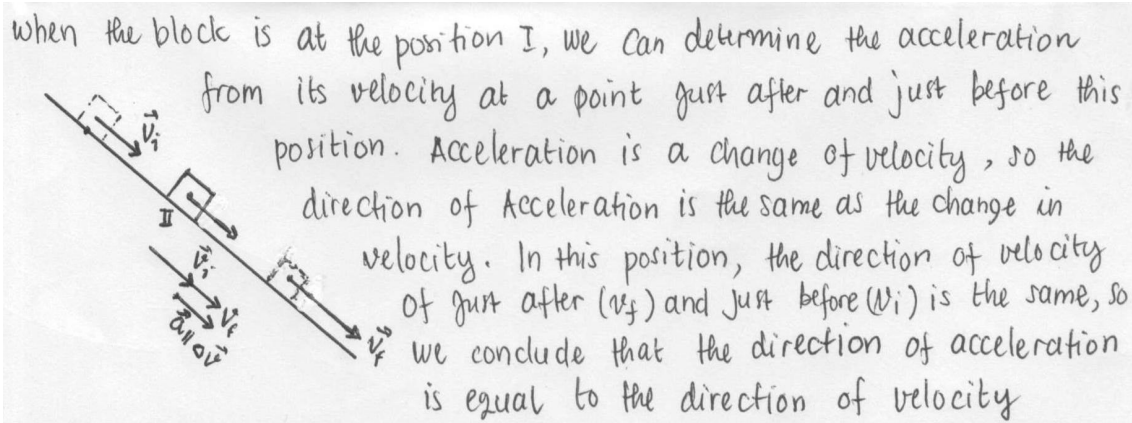 when the block is at the position I, we can determine the acceleration
from its velocity at a point just after and just before this
position. Acceleration is a change of velocity, so the
direction of Acceleration is the same as the change in
velocity. In this position, the direction of velocity
of just after (v_f) and just before (v_i) is the same, so
we conclude that the direction of acceleration
is equal to the direction of velocity
v⃗_i
II
v⃗_i
v⃗_f
a⃗ || Δv⃗
v⃗_f